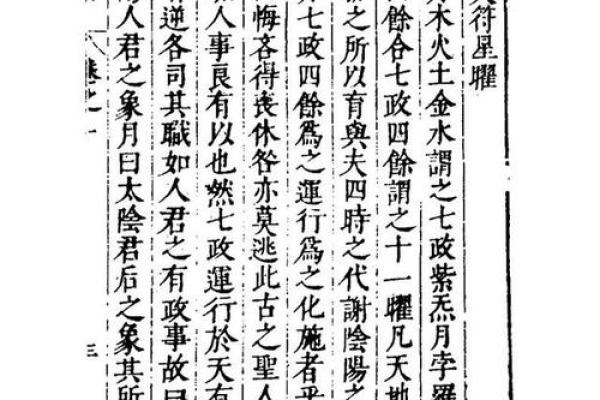 符星曜
木火土金水謂之七政紫炁月孛羅
餘合七政四餘謂之十一曜凡天地
之所以育與夫四時之代謝陰陽之
七政四餘爲之運行爲之化施者乎
悔吝得喪休咎亦莫逃此古之聖人
人事良有以也然七政運行於天有
逆各司其職如人君之有政事故曰
人君之象月曰太陰君后之象其所
卷之一 三